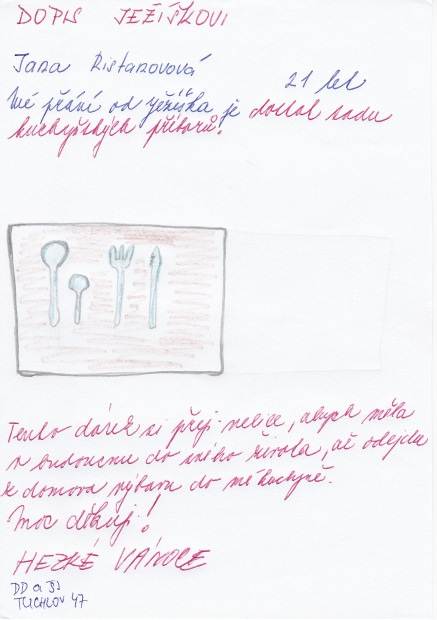 DOPIS JEŽÍŠKOVI
Jana Ristanovová 21 let
Mé přání od Ježíška je dostat sadu
kuchyňských příborů.
Tento dárek si přeji nejvíce, abych měla
v budoucnu do života, až odejdu
z domova výbavu do mé kuchyně.
Moc děkuji!
HEZKÉ VÁNOCE
DD a ŠJ
TUCHLOV 47